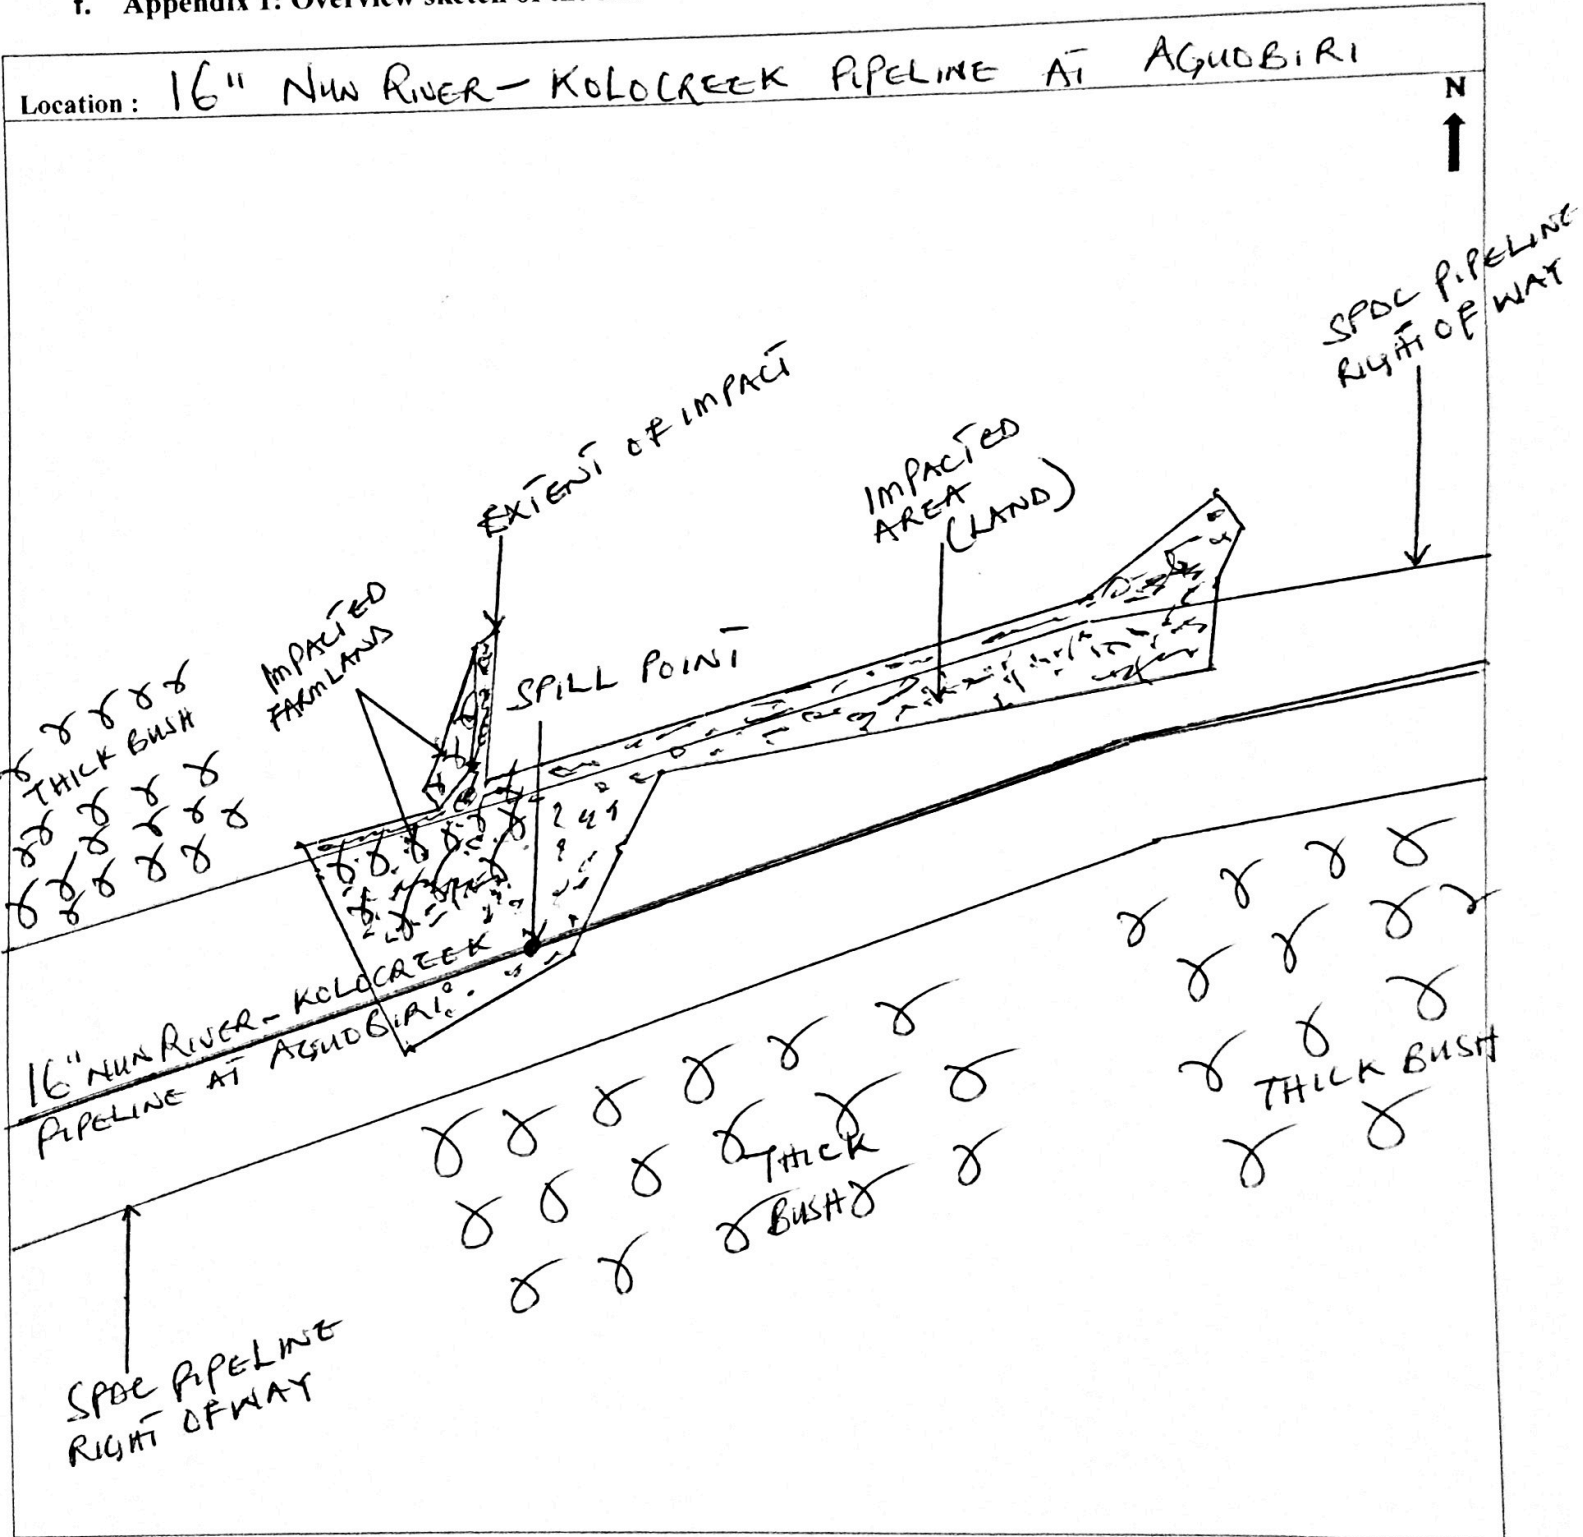 f. Appendix 1: Overview sketch of the
Location : 16" NUN RIVER - KOLOCREEK PIPELINE AT AGUOBIRI
N
SPDC PIPELINE
RIGHT OF WAY
EXTENT OF IMPACT
IMPACTED
AREA
(LAND)
IMPACTED
FARMLAND
SPILL POINT
THICK BUSH
16" NUN RIVER - KOLOCREEK
PIPELINE AT AGUOBIRI
THICK BUSH
THICK
BUSH
SPDC PIPELINE
RIGHT OF WAY